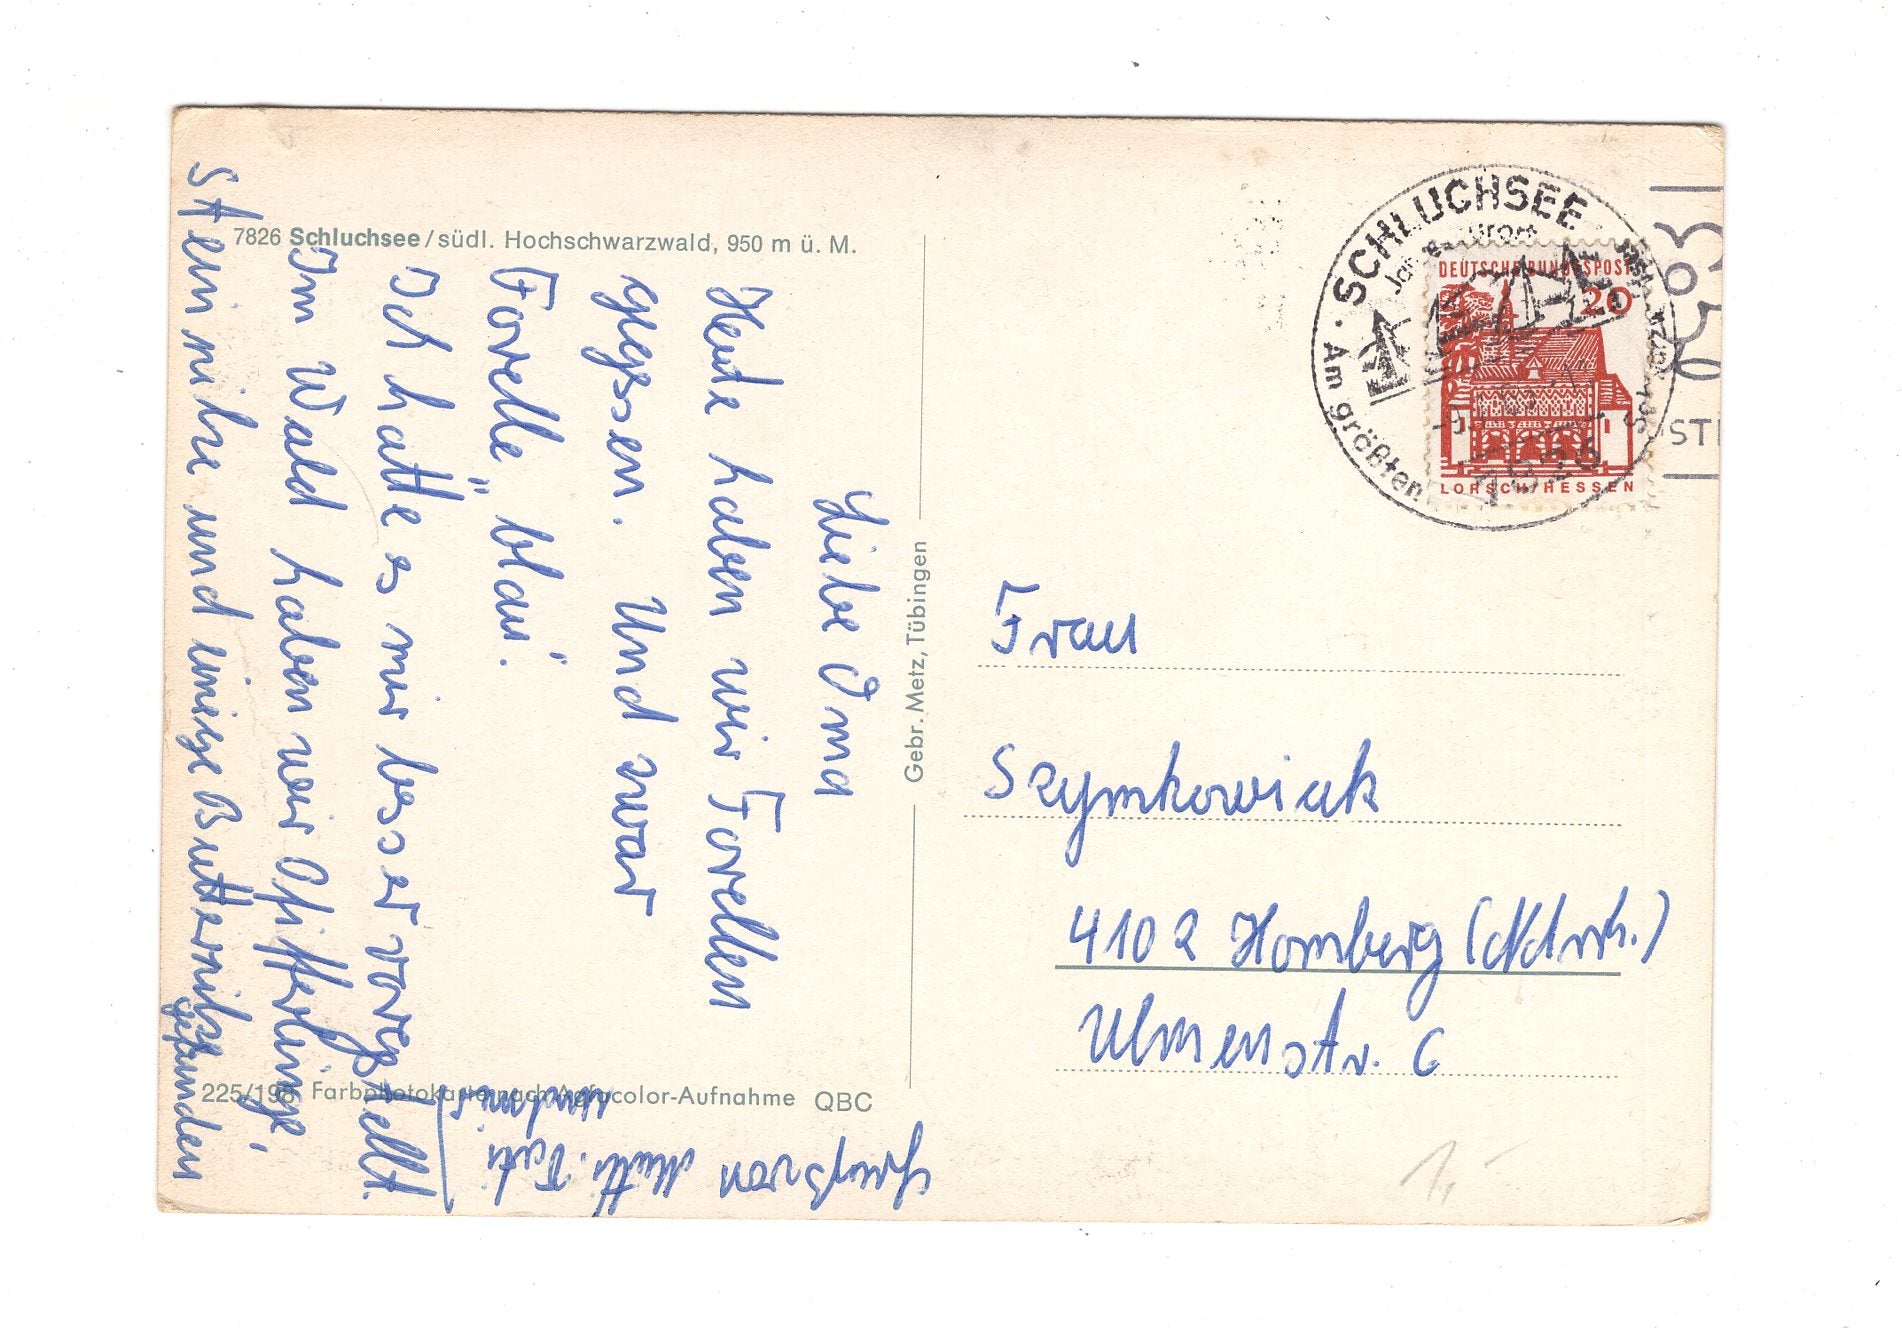 7826 Schluchsee / südl. Hochschwarzwald, 950 m ü. M.
Liebe Oma
Heute haben wir Forellen
gegessen. Und zwar
Forelle „blau“.
Ich hatte es mir besser vorgestellt.
Im Wald haben wir Pfifferlinge,
Steinpilze und einige Butterpilze
gefunden
Gruß von Mutti, Vati
und mir
225/198 Farbphotokarte nach Agfacolor-Aufnahme QBC
Gebr. Metz, Tübingen
SCHLUCHSEE
Am größten
7826
DEUTSCHE BUNDESPOST
20
LORSCH/HESSEN
Frau
Szymkowiak
4102 Homberg (Ndrrh.)
Ulmenstr. 6
1,-